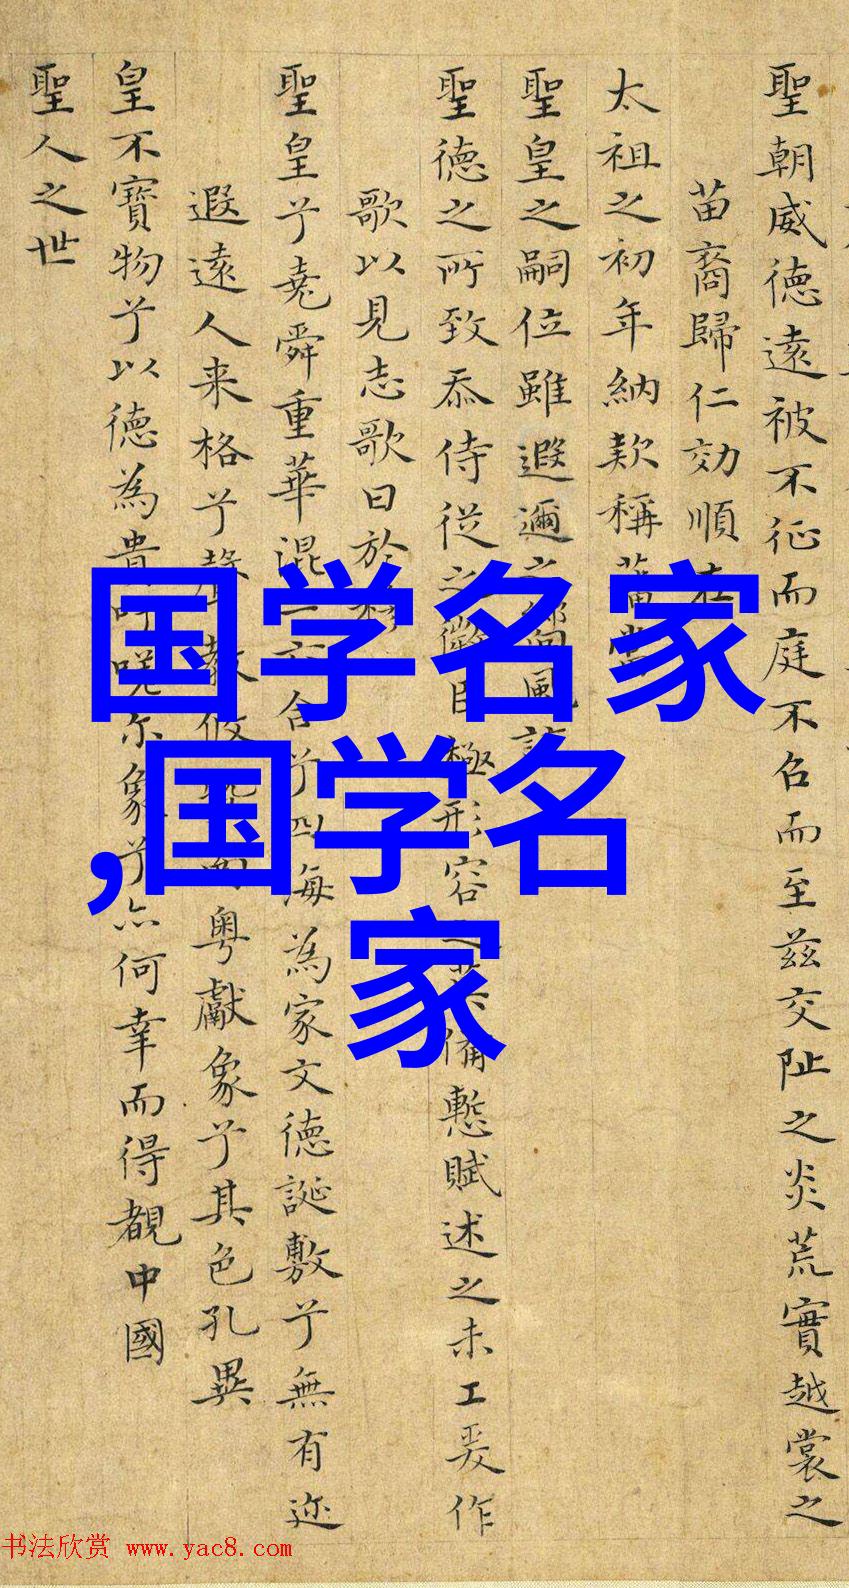 聖朝威德遠被不征而庭不召而至茲交阯之炎荒實越裳之
苗裔歸仁効順在
太祖之初年納款稱藩當
聖皇之嗣位雖遐邇之鄉風諒
聖德之所致忝侍從之微臣極形容備慙賦述之未工爰作
歌以見志歌曰於穆
聖皇兮堯舜重華混一六合兮四海為家文德誕敷兮無有迩
遐遠人来格兮聲教粤獻象兮其色孔異
皇不寶物兮以德為貴吁嗟尔象兮亦何幸而得覩中國
聖人之世
国学名家
,国学名
家
书法欣赏 www.yac8.com